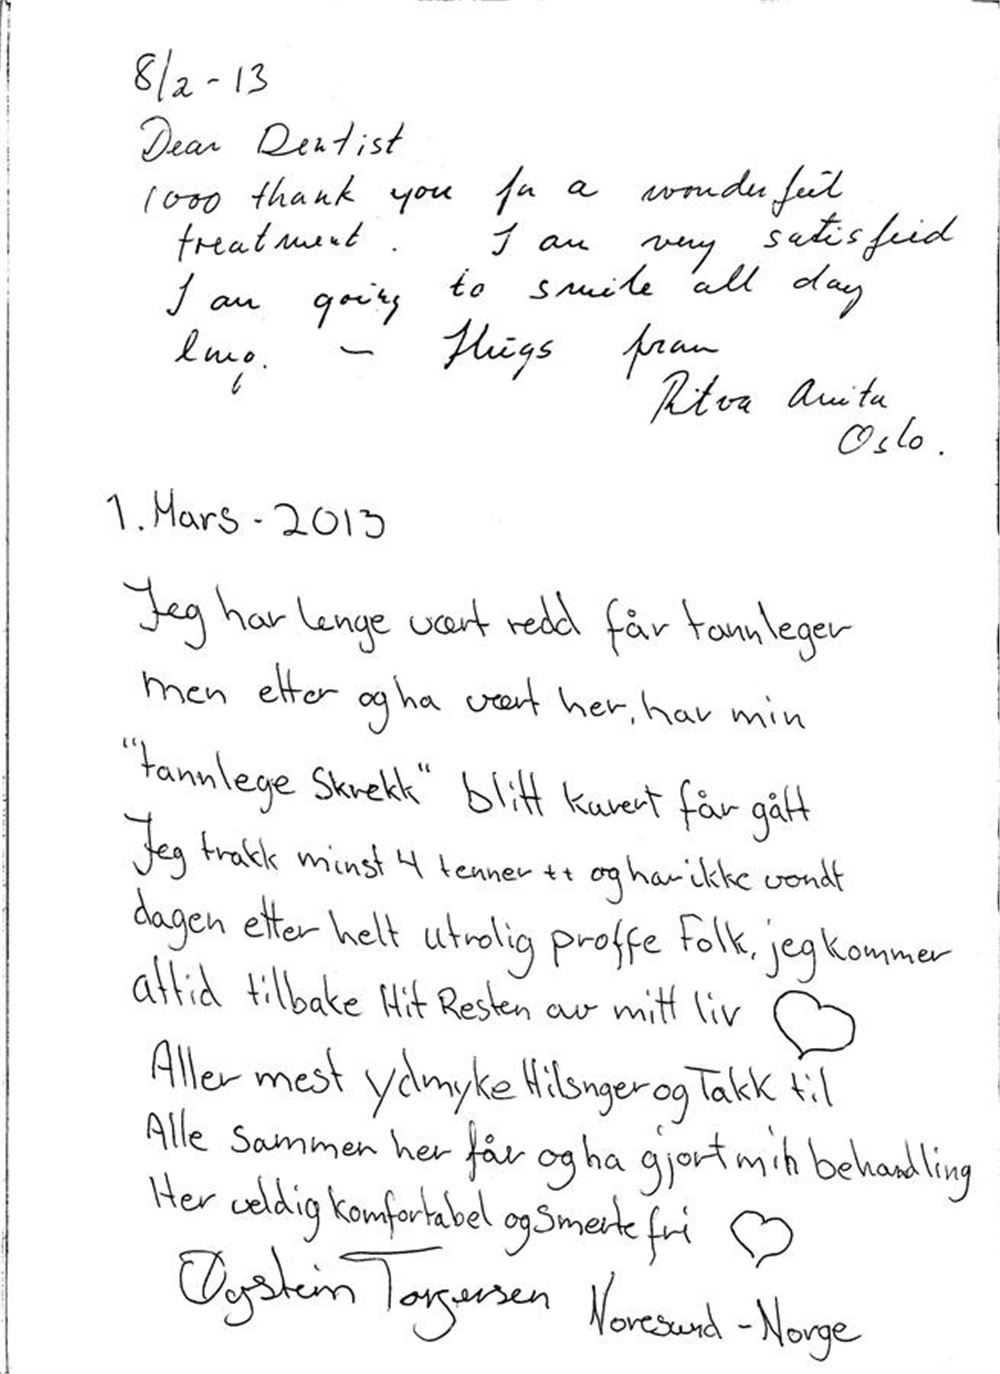 8/2 - 13
Dear Dentist
1000 thank you for a wonderful
treatment. I am very satisfied
I am going to smile all day
long. — Hugs from
Ritva Anita
Oslo.
1. Mars - 2013
Jeg har lenge vært redd får tannleger
men etter og ha vært her, har min
"tannlege Skrekk" blitt kurert får gått
Jeg trakk minst 4 tenner ++ og har ikke vondt
dagen etter helt utrolig proffe Folk, jeg kommer
alltid tilbake Hit Resten av mitt liv ♡
Aller mest ydmyke Hilsnger og Takk til
Alle sammen her får og ha gjort min behandling
Her veldig komfortabel og Smerte fri ♡
Øystein Torgersen Noresund - Norge